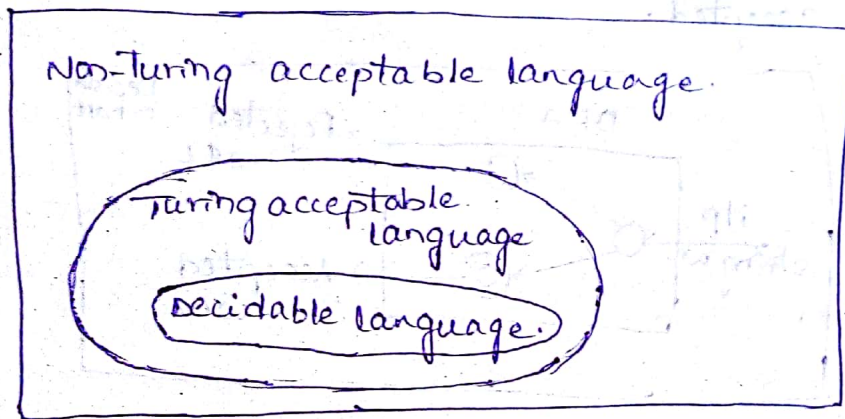 Non-Turing acceptable language.
Turing acceptable
language
Decidable language.